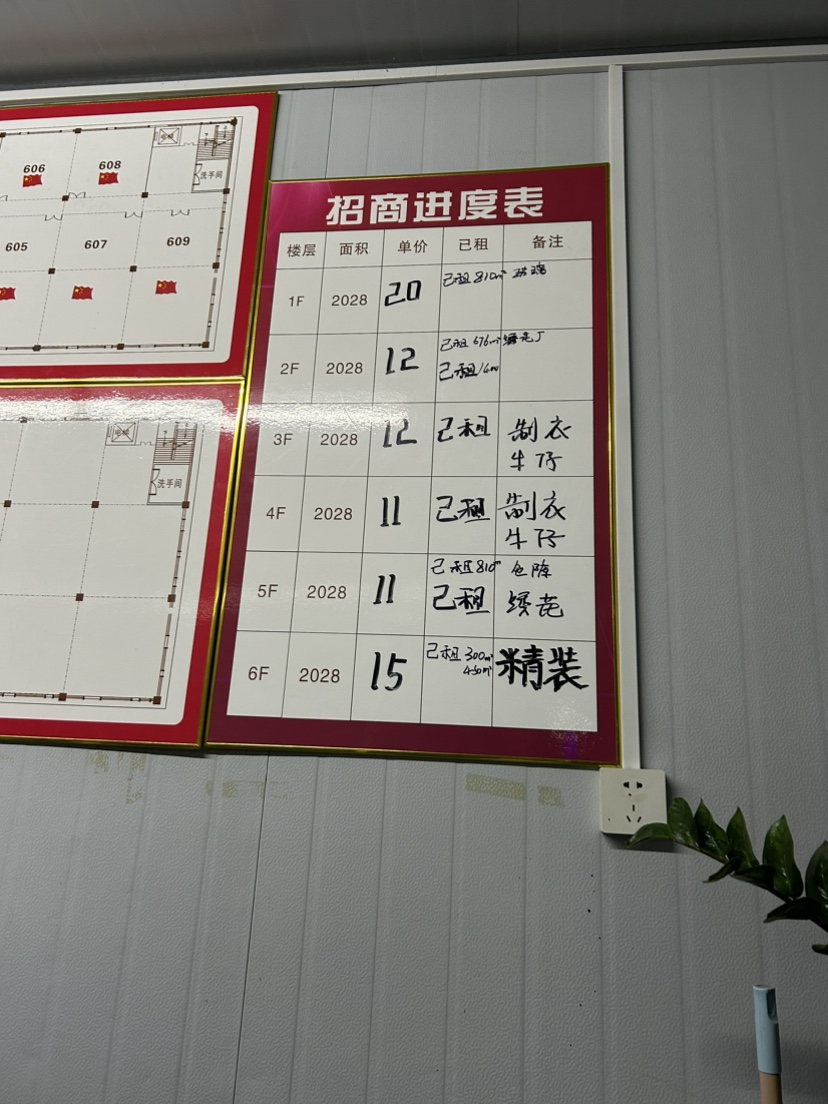 606
608
电梯
洗手间
605
607
609
电梯
洗手间
招商进度表
楼层 面积 单价 已租 备注
1F 2028 20 已租810㎡ 玻璃
2F 2028 12 已租676㎡ 绣花厂
已租
3F 2028 12 已租 制衣
牛仔
4F 2028 11 已租 制衣
牛仔
已租810㎡ 仓库
5F 2028 11 已租 绣花
6F 2028 15 已租300㎡ 精装
450㎡